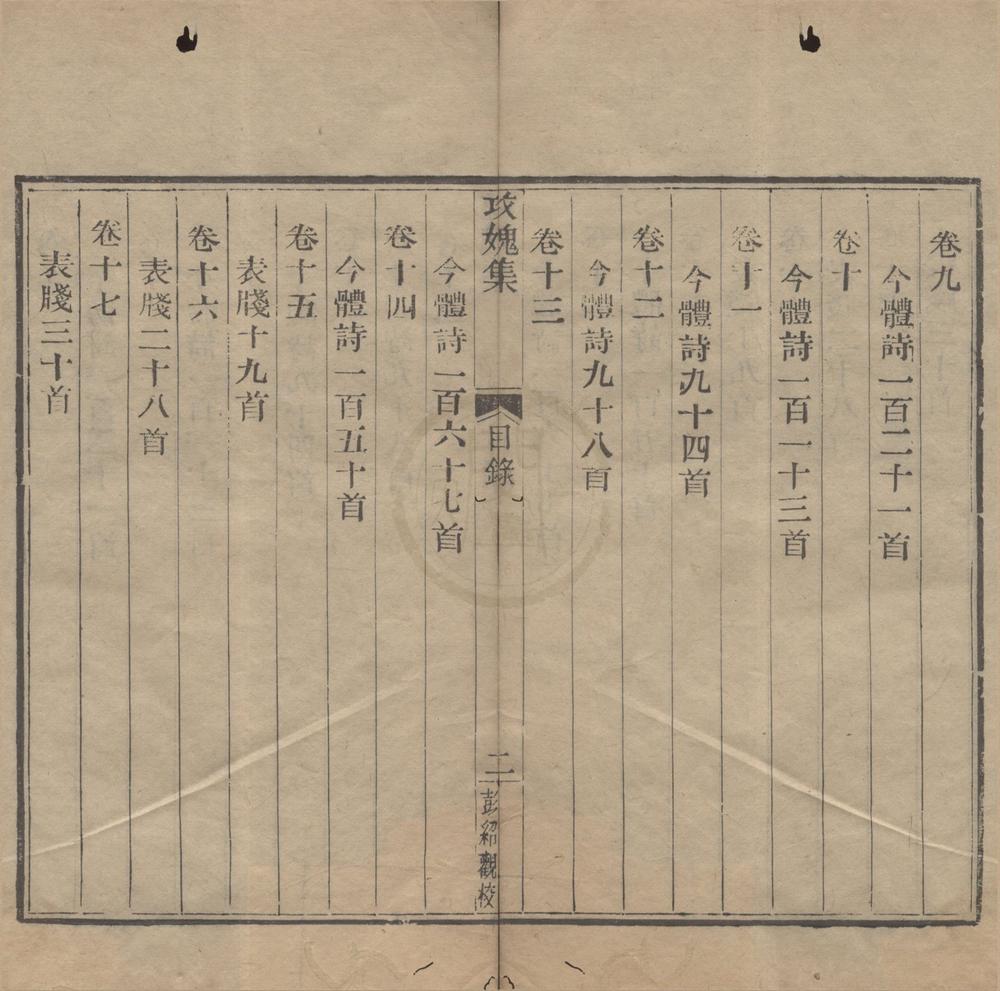 卷九
今體詩一百二十一首
卷十
今體詩一百一十三首
卷十一
今體詩九十四首
卷十二
今體詩九十八首
卷十三
攻媿集
目錄
二
彭紹觀校
今體詩一百六十七首
卷十四
今體詩一百五十首
卷十五
表牋十九首
卷十六
表牋二十八首
卷十七
表牋三十首